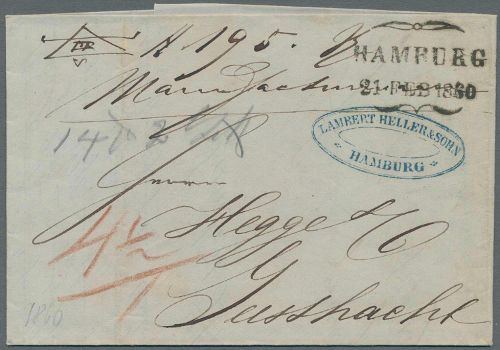 # 195. HAMBURG
21 FEB 1860
Manufactur
LAMBERT HELLER & SOHN
HAMBURG
14 2
Herren
4½
Hegge & C
Geesthacht
1860